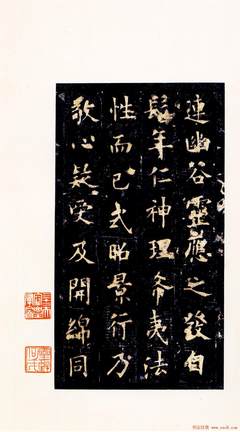 連幽谷靈應之發自
髫年仁神理希夷法
性而已式昭景行乃
敬心疑受及開綿同